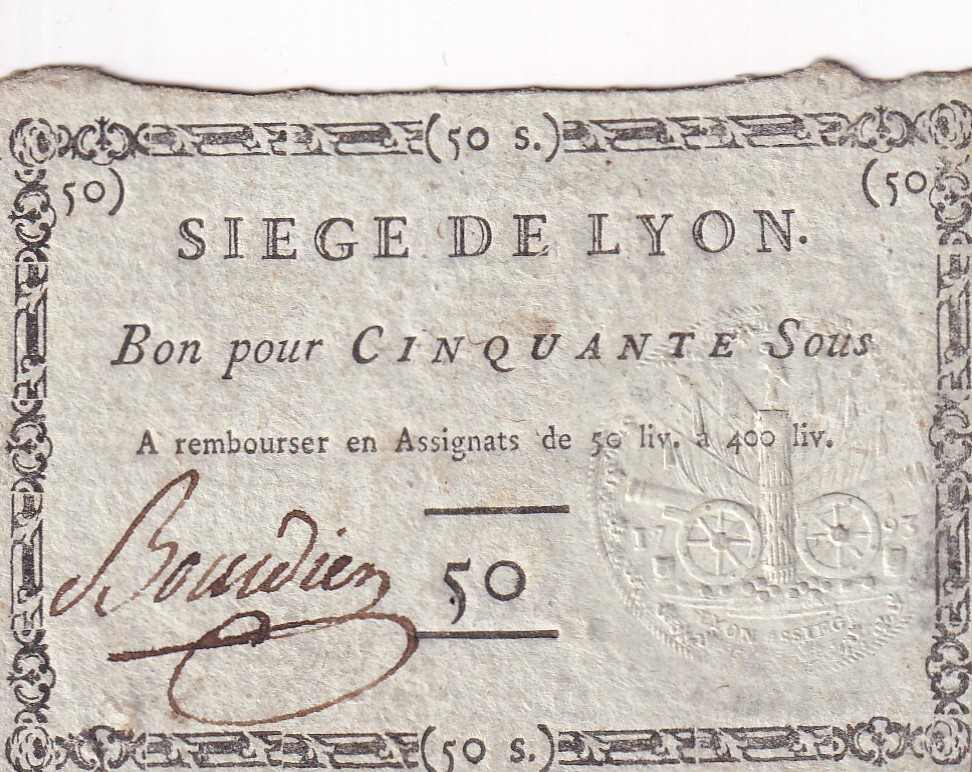 (50 s.)
50) (50
SIEGE DE LYON.
Bon pour CINQUANTE Sous
A rembourser en Assignats de 50 liv. à 400 liv.
Bourdien
50
17 93
LYON ASSIEG
(50 s.)